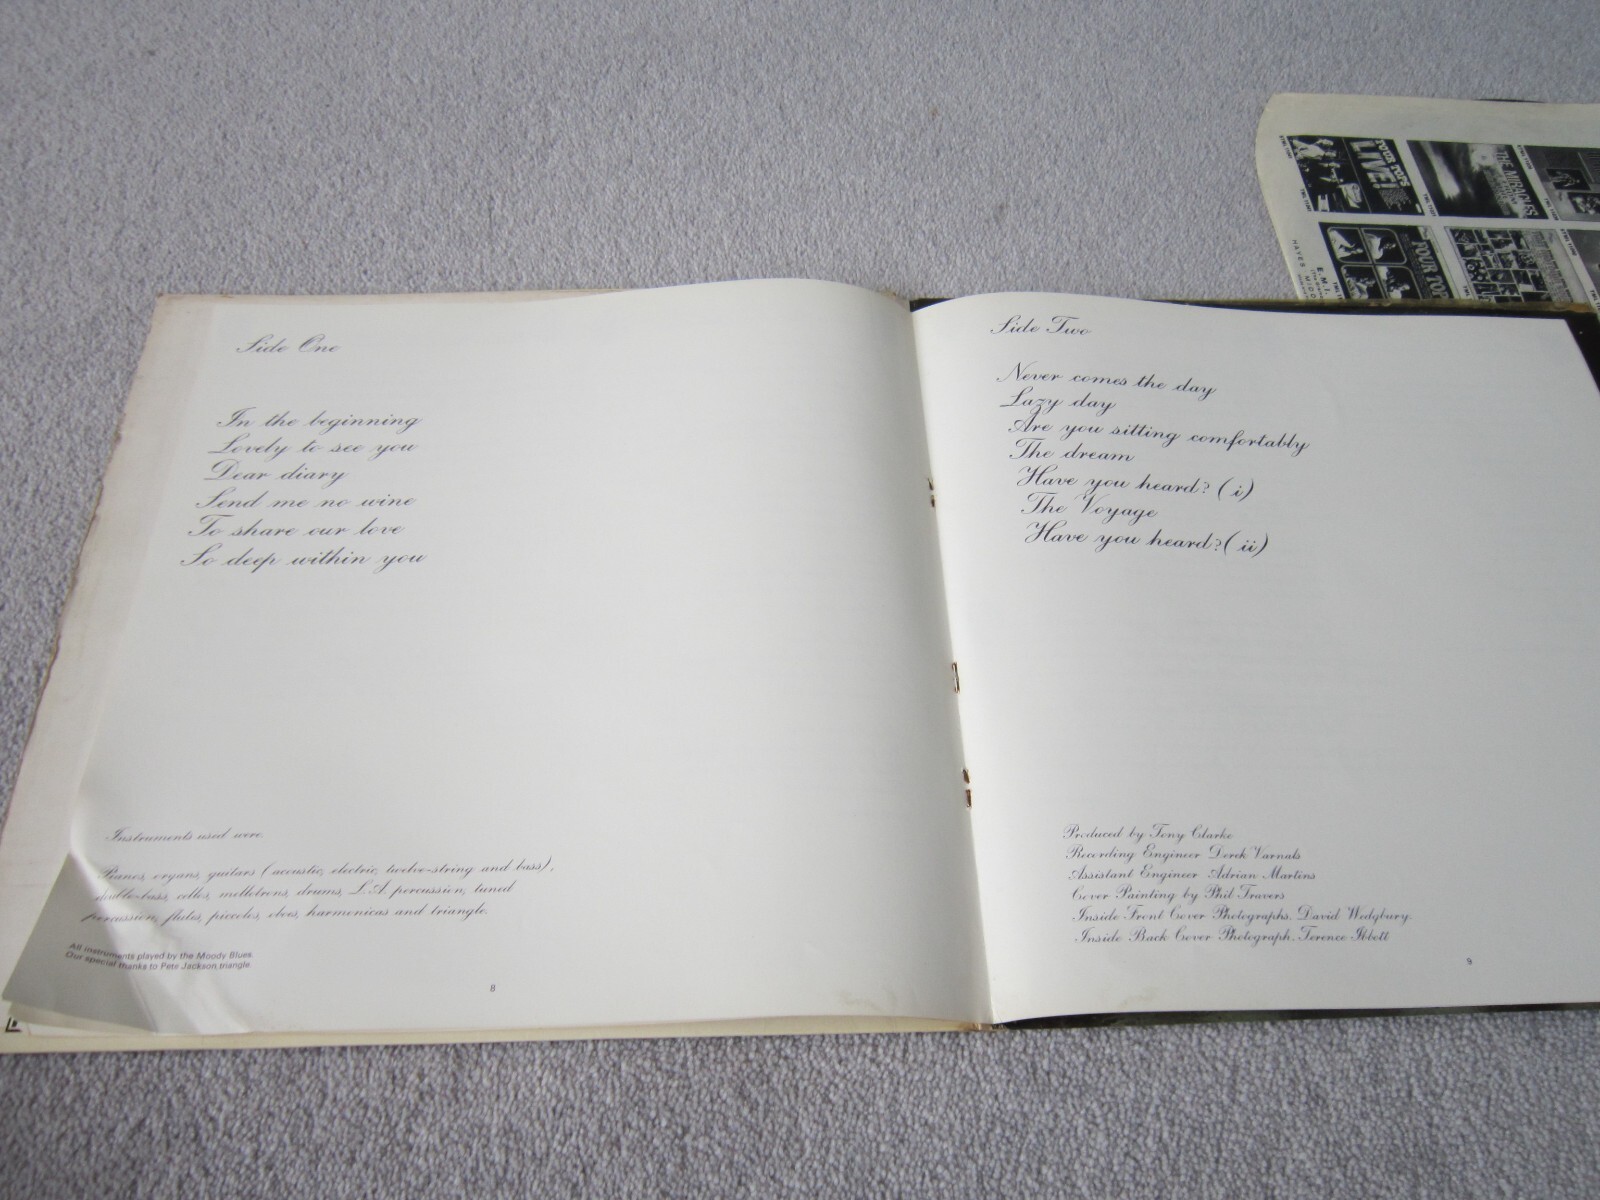 Side One
In the beginning
Lovely to see you
Dear diary
Send me no wine
To share our love
So deep within you
Instruments used were.
Pianos, organs, guitars (acoustic, electric, twelve-string and bass),
double-bass, cellos, mellotrons, drums, L.A. percussion, tuned
percussion, flutes, piccolos, oboes, harmonicas and triangle.
All instruments played by the Moody Blues.
Our special thanks to Pete Jackson, triangle.
8
Side Two
Never comes the day
Lazy day
Are you sitting comfortably
The dream
Have you heard? (i)
The Voyage
Have you heard? (ii)
Produced by Tony Clarke
Recording Engineer Derek Varnals
Assistant Engineer Adrian Martins
Cover Painting by Phil Travers
Inside Front Cover Photographs. David Wedgbury.
Inside Back Cover Photograph. Terence Ibbott
9
FOUR TOPS
LIVE!
THE MIRACLES
FOUR TOPS
E.M.I.
HAYES